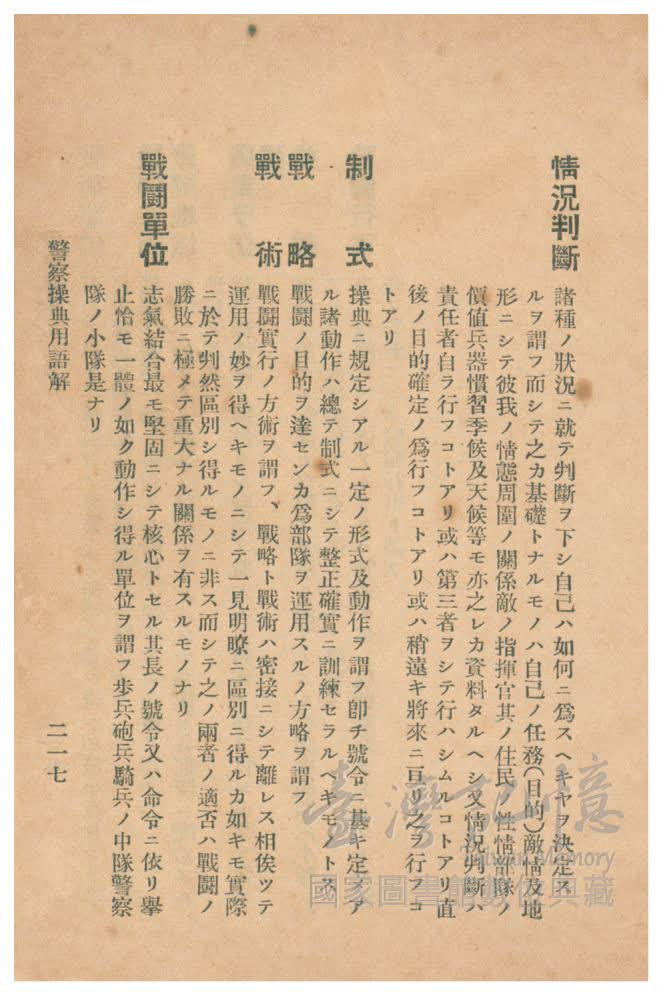 情況判斷 諸種ノ狀況ニ就テ判斷ヲ下シ自己ハ如何ニ爲スヘキヤヲ決定ス
ルヲ謂フ而シテ之カ基礎トナルモノハ自己ノ任務(目的)敵情及地
形ニシテ彼我ノ情態周圍ノ關係敵ノ指揮官其ノ住民ノ性情部隊ノ
價値兵器慣習季候及天候等モ亦之レカ資料タルヘシ又情況判斷ハ
責任者自ラ行フコトアリ或ハ第三者ヲシテ行ハシムルコトアリ直
後ノ目的確定ノ爲行フコトアリ或ハ稍遠キ將來ニ亘リ之ヲ行フコ
トアリ
制式 操典ニ規定シアル一定ノ形式及動作ヲ謂フ卽チ號令ニ基キ定メア
ル諸動作ハ總テ制式ニシテ整正確實ニ訓練セラルヘキモノトス
戰略 戰鬪ノ目的ヲ達センカ爲部隊ヲ運用スルノ方略ヲ謂フ
戰術 戰鬪實行ノ方術ヲ謂フ、戰略ト戰術ハ密接ニシテ離レス相俟ツテ
運用ノ妙ヲ得ヘキモノニシテ一見明瞭ニ區別ニ得ルカ如キモ實際
ニ於テ判然區別シ得ルモノニ非ス而シテ之ノ兩者ノ適否ハ戰鬪ノ
勝敗ニ極メテ重大ナル關係ヲ有スルモノナリ
戰鬪單位 志氣結合最モ堅固ニシテ核心トセル其長ノ號令又ハ命令ニ依リ擧
止恰モ一體ノ如ク動作シ得ル單位ヲ謂フ步兵砲兵騎兵ノ中隊警察
隊ノ小隊是ナリ
警察操典用語解
二一七
臺灣記憶
Taiwan Memory
國家圖書館數位典藏